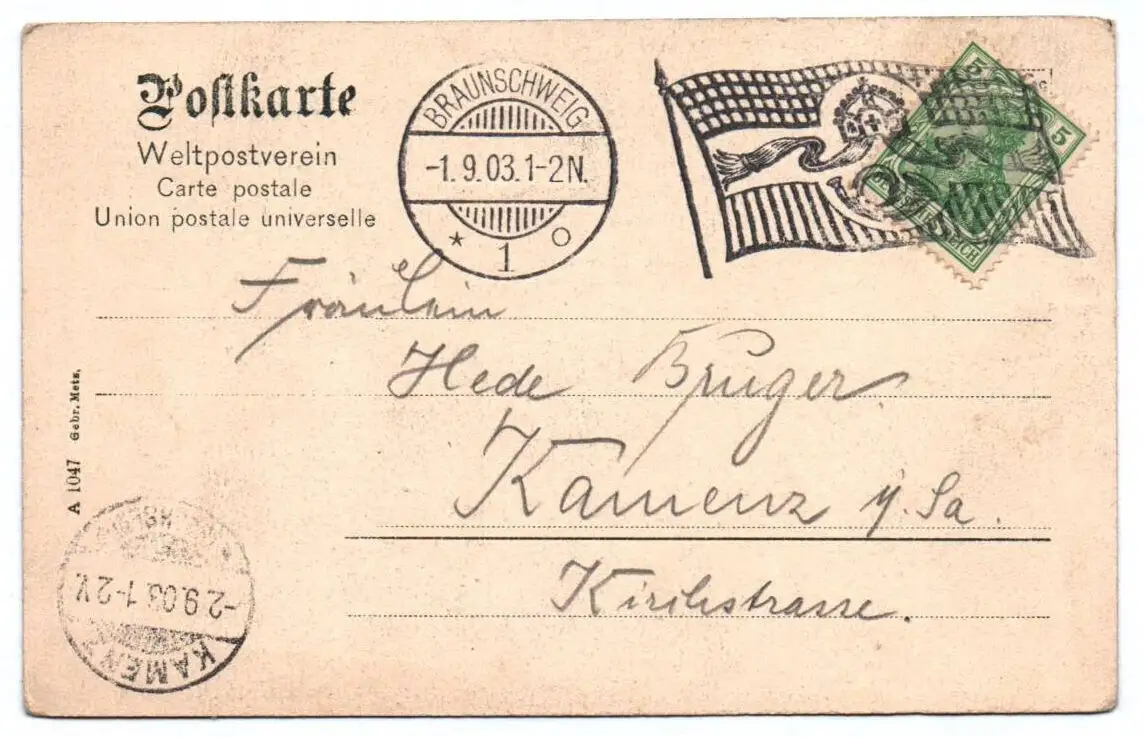 Postkarte
Weltpostverein
Carte postale
Union postale universelle
BRAUNSCHWEIG
-1.9.03.1-2N.
* 1 o
5
5
Fräulein
Hede Brüger.
Kamenz i/Sa.
Kirchstrasse.
A 1047 Gebr. Metz,
KAMENZ
-2 9.03 1-2 V.